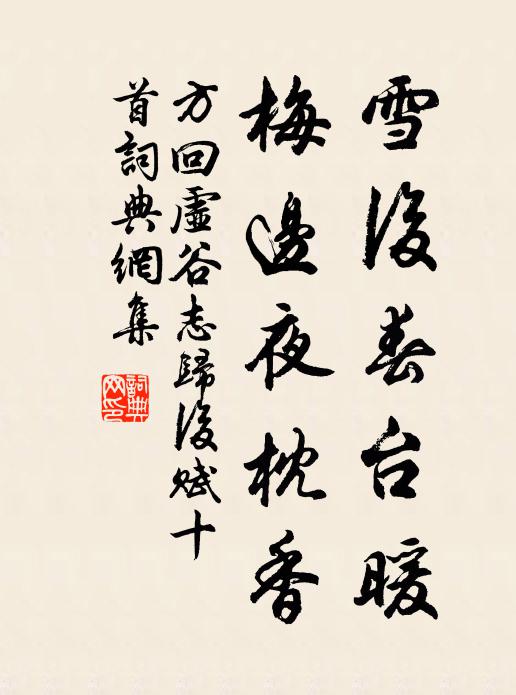 雪後春台暖
梅邊夜枕香
方回虛谷志歸後賦十
首詞典網集
詞典网印